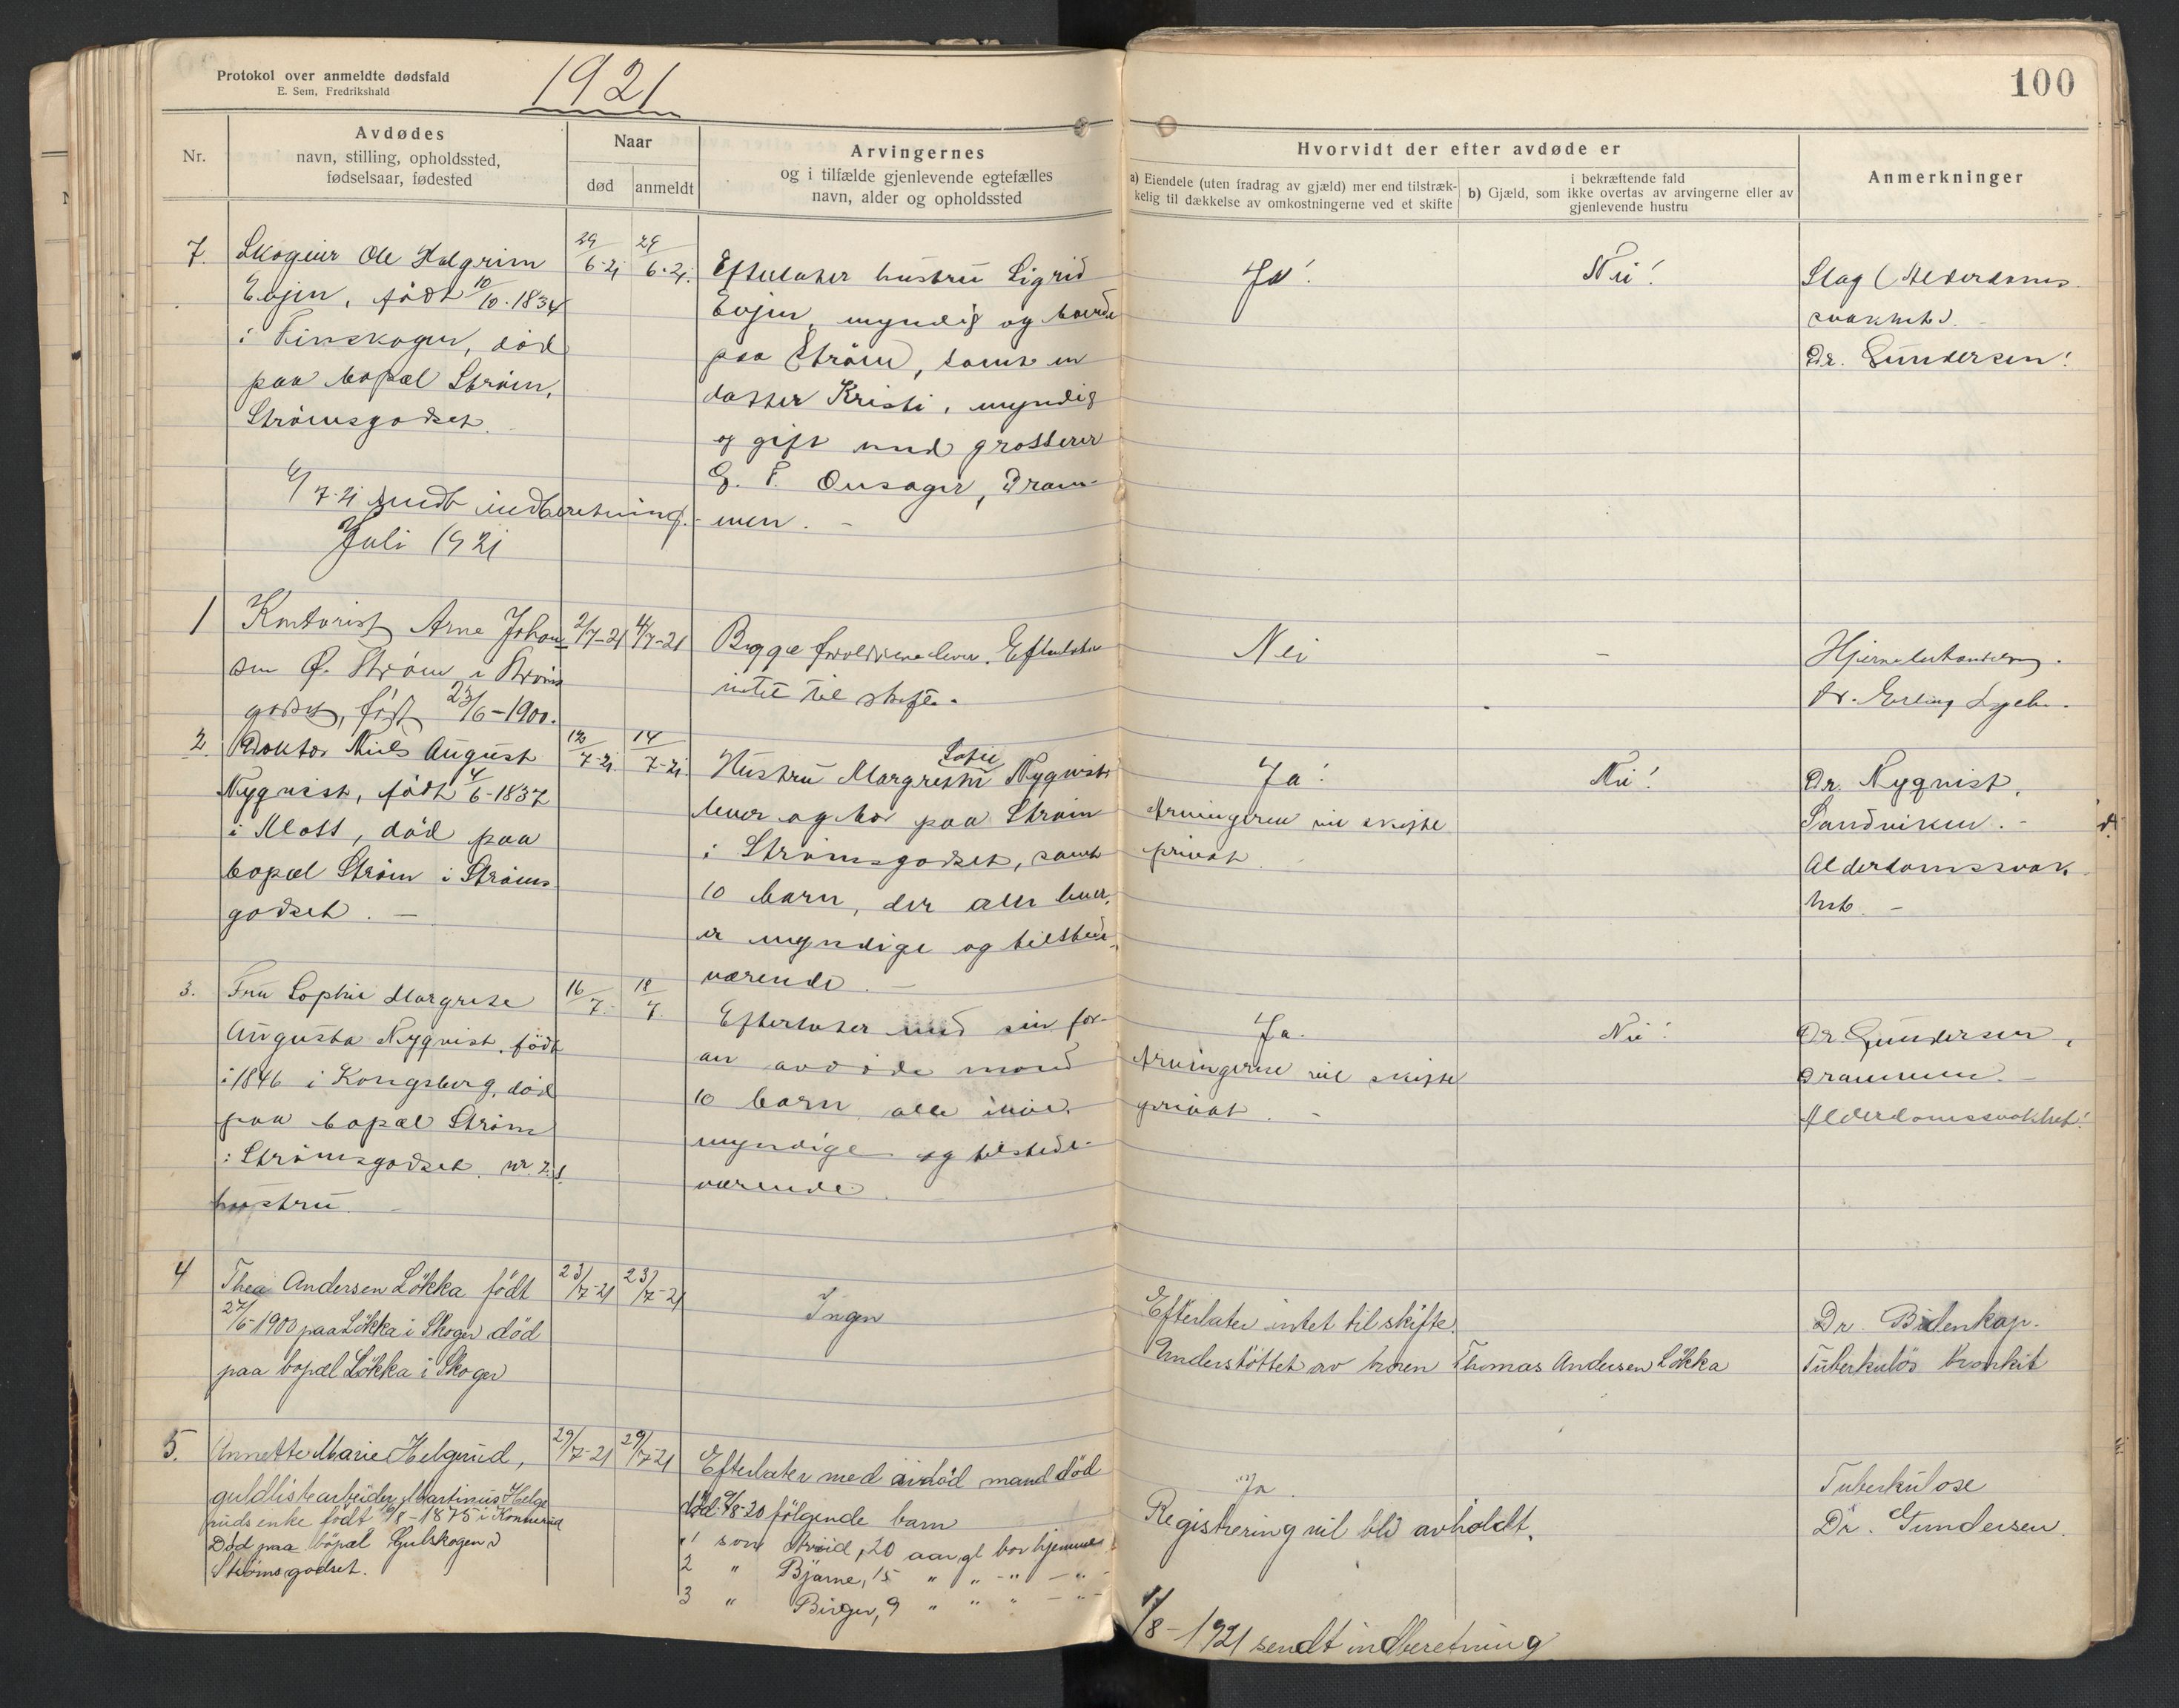 Protokol over anmeldte dødsfald
E. Sem, Fredrikshald
1921
100
Nr.
Avdødes
navn, stilling, opholdssted,
fødselsaar, fødested
Naar
død
anmeldt
Arvingernes
og i tilfælde gjenlevende egtefælles
navn, alder og opholdssted
Hvorvidt der efter avdøde er
a) Eiendele (uten fradrag av gjæld) mer end tilstræk-
kelig til dækkelse av omkostningerne ved et skifte
i bekræftende fald
b) Gjæld, som ikke overtas av arvingerne eller av
gjenlevende hustru
Anmerkninger
7.
Skogeier Ole Halgrim
Evjen, født 10/10-1834
i Finskogen, død
paa bopæl Strøm,
Strømsgodset.
29/6-21
29/6-21.
Efterlater hustru Sigrid
Evjen, myndig og boende
paa Strøm, samt en
datter Kristi, myndig
og gift med grosserer
G. P. Onsager, Dram-
men. -
Ja!
Nei!
Slag (Alderdoms
svakhet).
Dr. Gundersen!
/7-21 sendt indberetning.
Juli 1921
1
Kontorist Arne Johan
sen Ø. Strøm i Strøms
godset, født 23/6-1900.
2/7-21
4/7-21
Begge forældrene lever. Efterlater
intet til skifte.
Nei
-
Dr. Erling
2.
Doktor Niels August
Nyqvist, født 4/6-1837
i Moss, død paa
bopæl Strøm i Strøms
godset. -
7-21.
14/7-21
Hustru Margrethe Sofie Nyqvist
lever og bor paa Strøm
i Strømsgodset, samt
10 barn, der alle lever,
er myndige og tilstede-
værende. -
Ja!
Arvingerne vil skifte
privat.
Nei!
Dr. Nyqvist,
Sandviken. -
Alderdomssvak
het. -
3.
Fru Sophie Margrete
Augusta Nyqvist, født
i 1846 i Kongsberg, død
paa bopæl Strøm
i Strømsgodset. nr. 2.s
hustru. -
16/7.
18/7.
Efterlater med sin for-
an avdøde mand
10 barn, alle
myndige og tilstede-
værende.
Ja.
Arvingerne vil skifte
privat. -
Nei!
Dr. Gundersen,
Drammen. -
Alderdomssvakhet!
4
Thea Andersen Løkka født
27/6-1900 paa Løkka i Skoger død
paa bopæl Løkka i Skoger
23/7-21
23/7-21
Ingen
Efterlater intet til skifte.
Understøttet av broren Thomas Andersen Løkka
Dr. Bidenkap.
Tuberkuløs bronkit
5.
Annette Marie Helgerud,
guldlistearbeider Martinus Helge
ruds enke født /8-1875 i Konnerud
Død paa bopæl Gulskogen i
Strømsgodset.
29/7-21
29/7-21
Efterlater med avdød mand død
død /8-20 følgende barn
1 søn Arvid, 20 aar gl bor hjemme
2 " Bjarne, 15 " " - " - " -
3 " Birger, 9 " " " - " -
Ja.
Registrering vil bli avholdt.
Tuberkulose
Dr. Gundersen.
1/8-1921 sendt indberetning